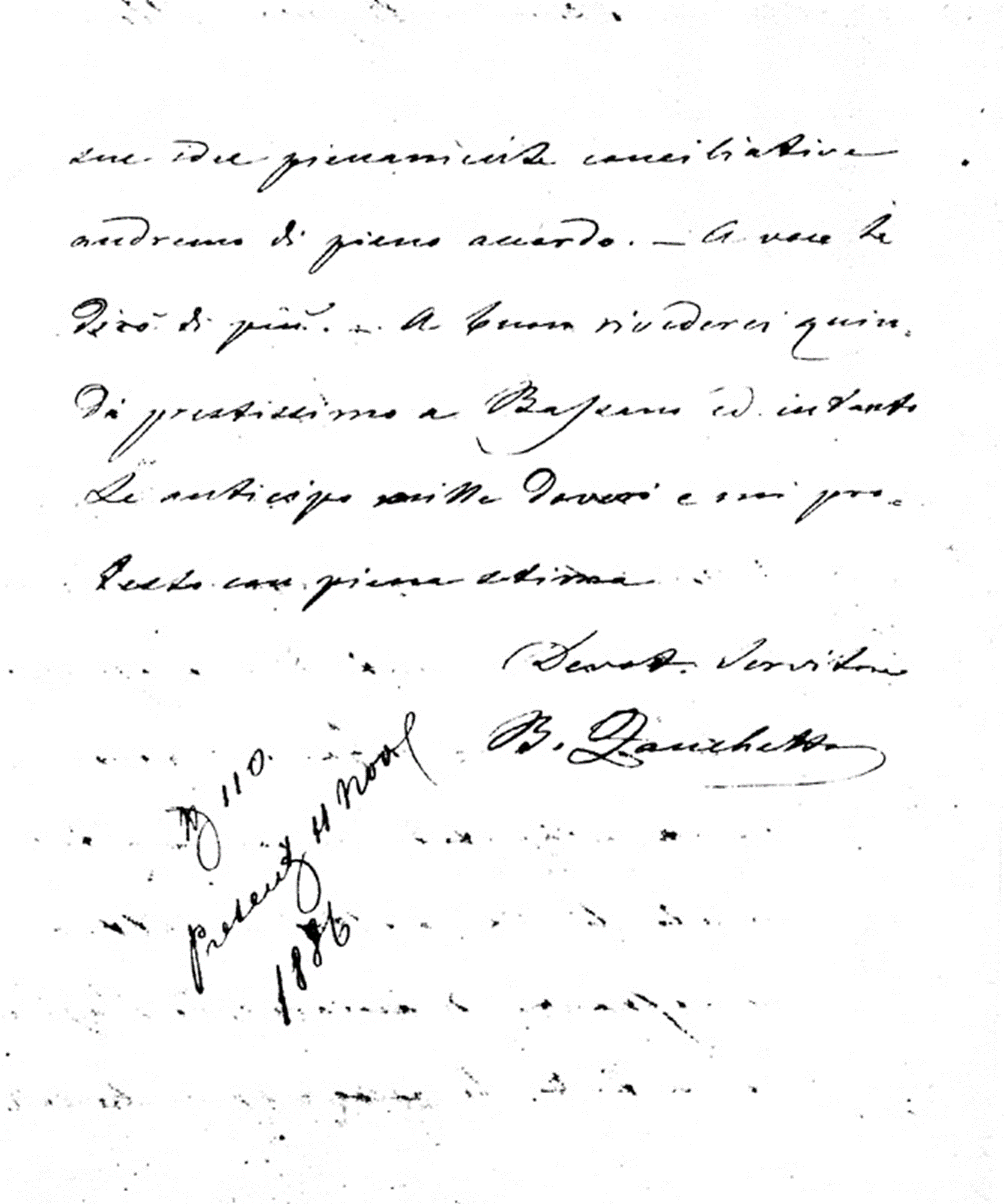 sue idee pienamente conciliative
andremo di pieno accordo. — A voce Le
dirò di più. — A buon rivederci quin-
di prestissimo a Bassano ed intanto
Le anticipo mille doveri e mi pro-
testo con piena stima
Devot. Servitore
B. Zanchetta
N 110.
Present 11 Nov
1886